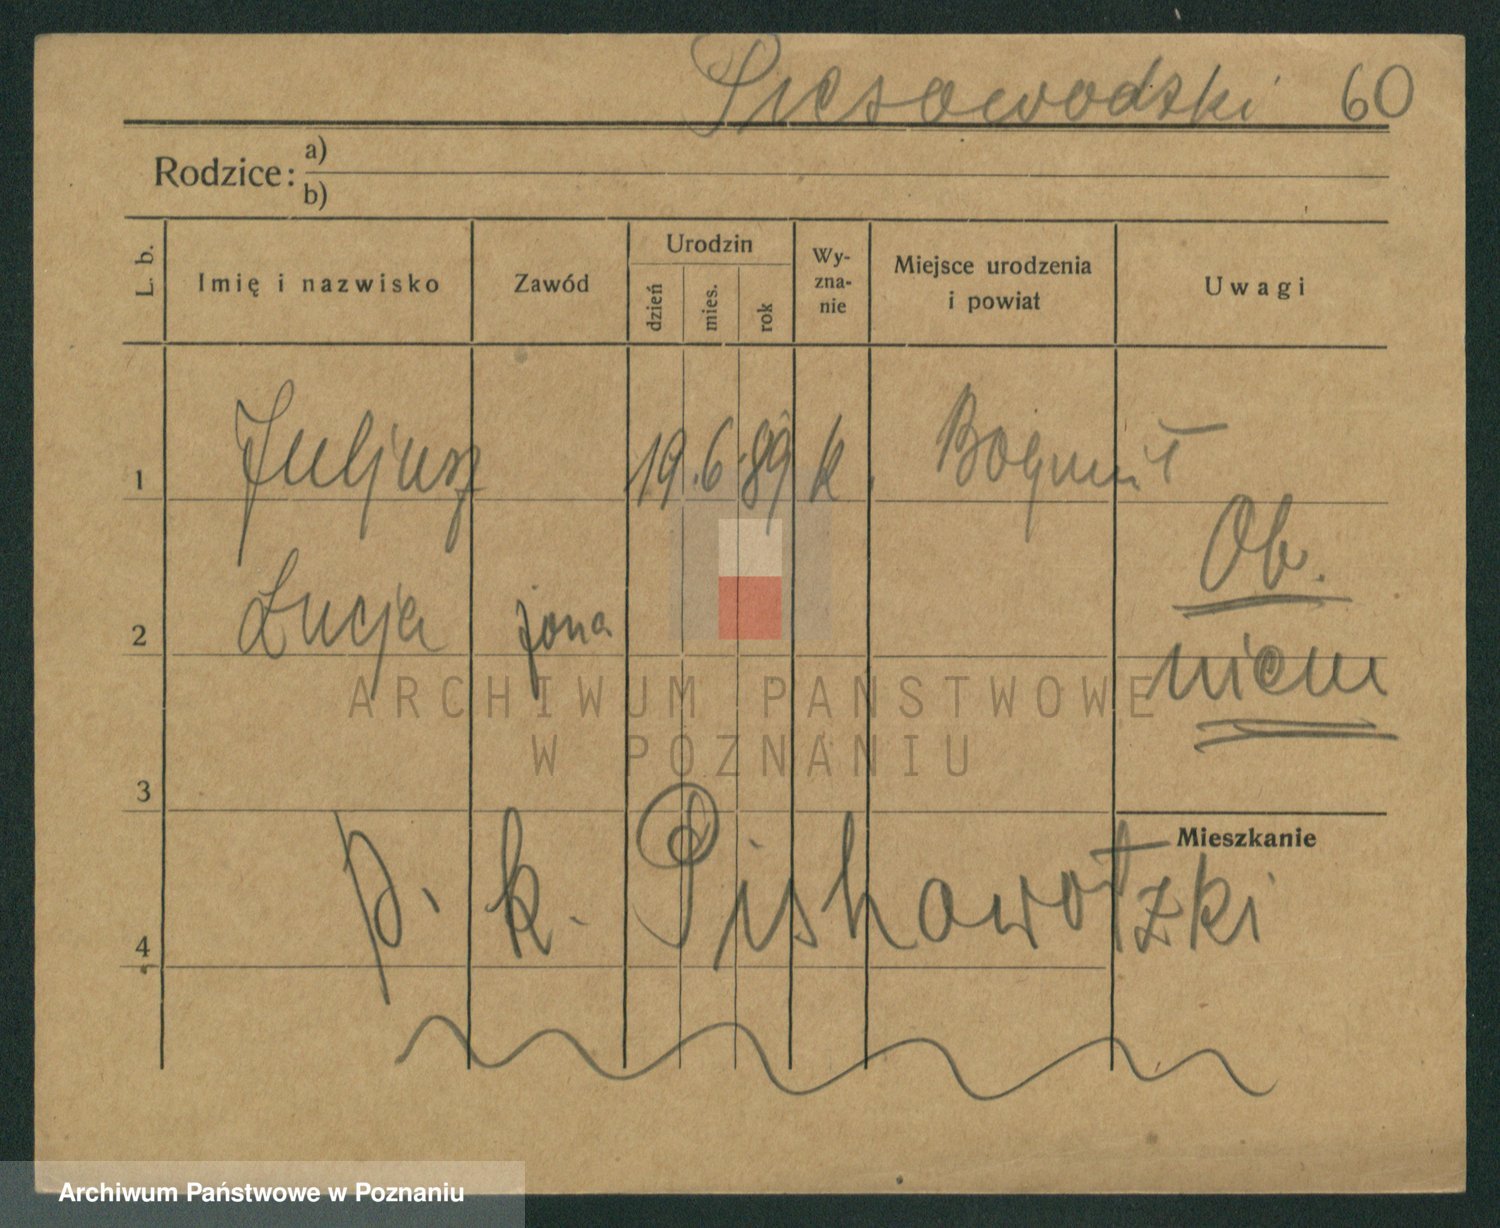 Piesowodzki 60
Rodzice: a)
b)
L. b.
Imię i nazwisko
Zawód
Urodzin
dzień
mies.
rok
Wy-
zna-
nie
Miejsce urodzenia
i powiat
Uwagi
1 Juljusz 19.6.89 k. Bogumił
Ob.
2 Łucja żona
niem
ARCHIWUM PAŃSTWOWE
W POZNANIU
3
Mieszkanie
4 p. k. Pishowotzki
Archiwum Państwowe w Poznaniu